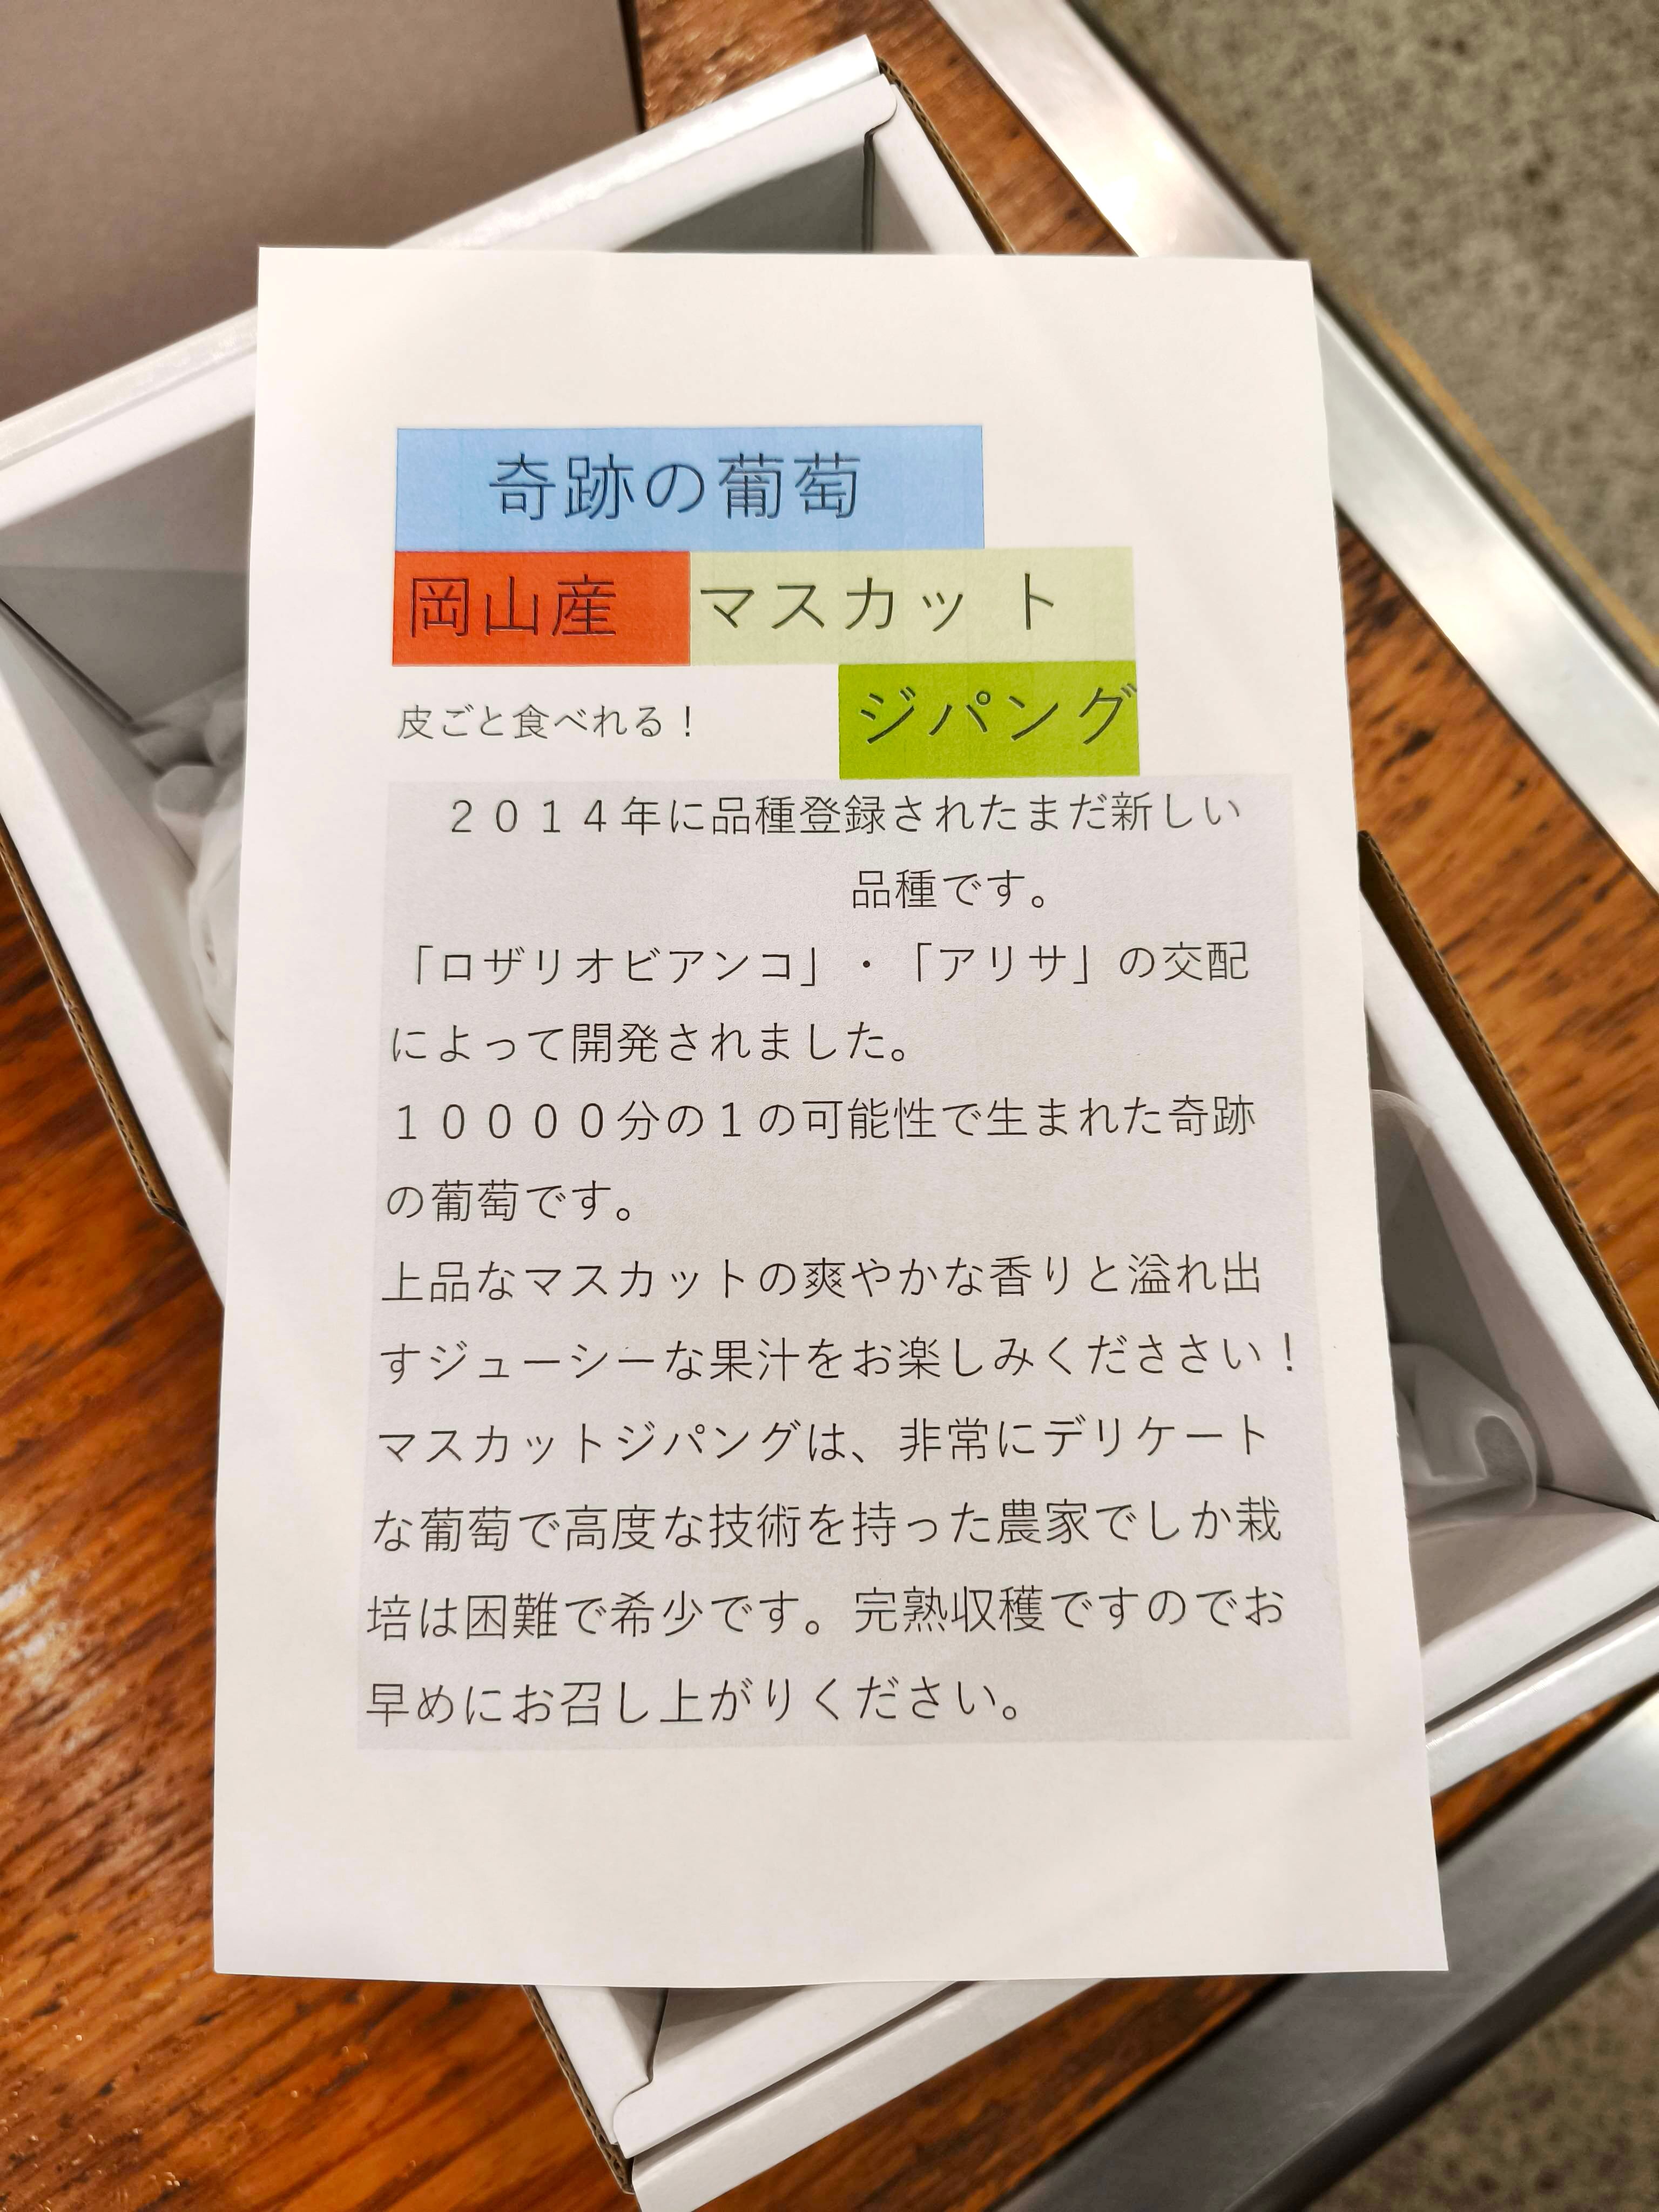 奇跡の葡萄
岡山産 マスカット
ジパング
皮ごと食べれる！
２０１４年に品種登録されたまだ新しい
品種です。
「ロザリオビアンコ」・「アリサ」の交配
によって開発されました。
１００００分の１の可能性で生まれた奇跡
の葡萄です。
上品なマスカットの爽やかな香りと溢れ出
すジューシーな果汁をお楽しみくだささい！
マスカットジパングは、非常にデリケート
な葡萄で高度な技術を持った農家でしか栽
培は困難で希少です。完熟収穫ですのでお
早めにお召し上がりください。